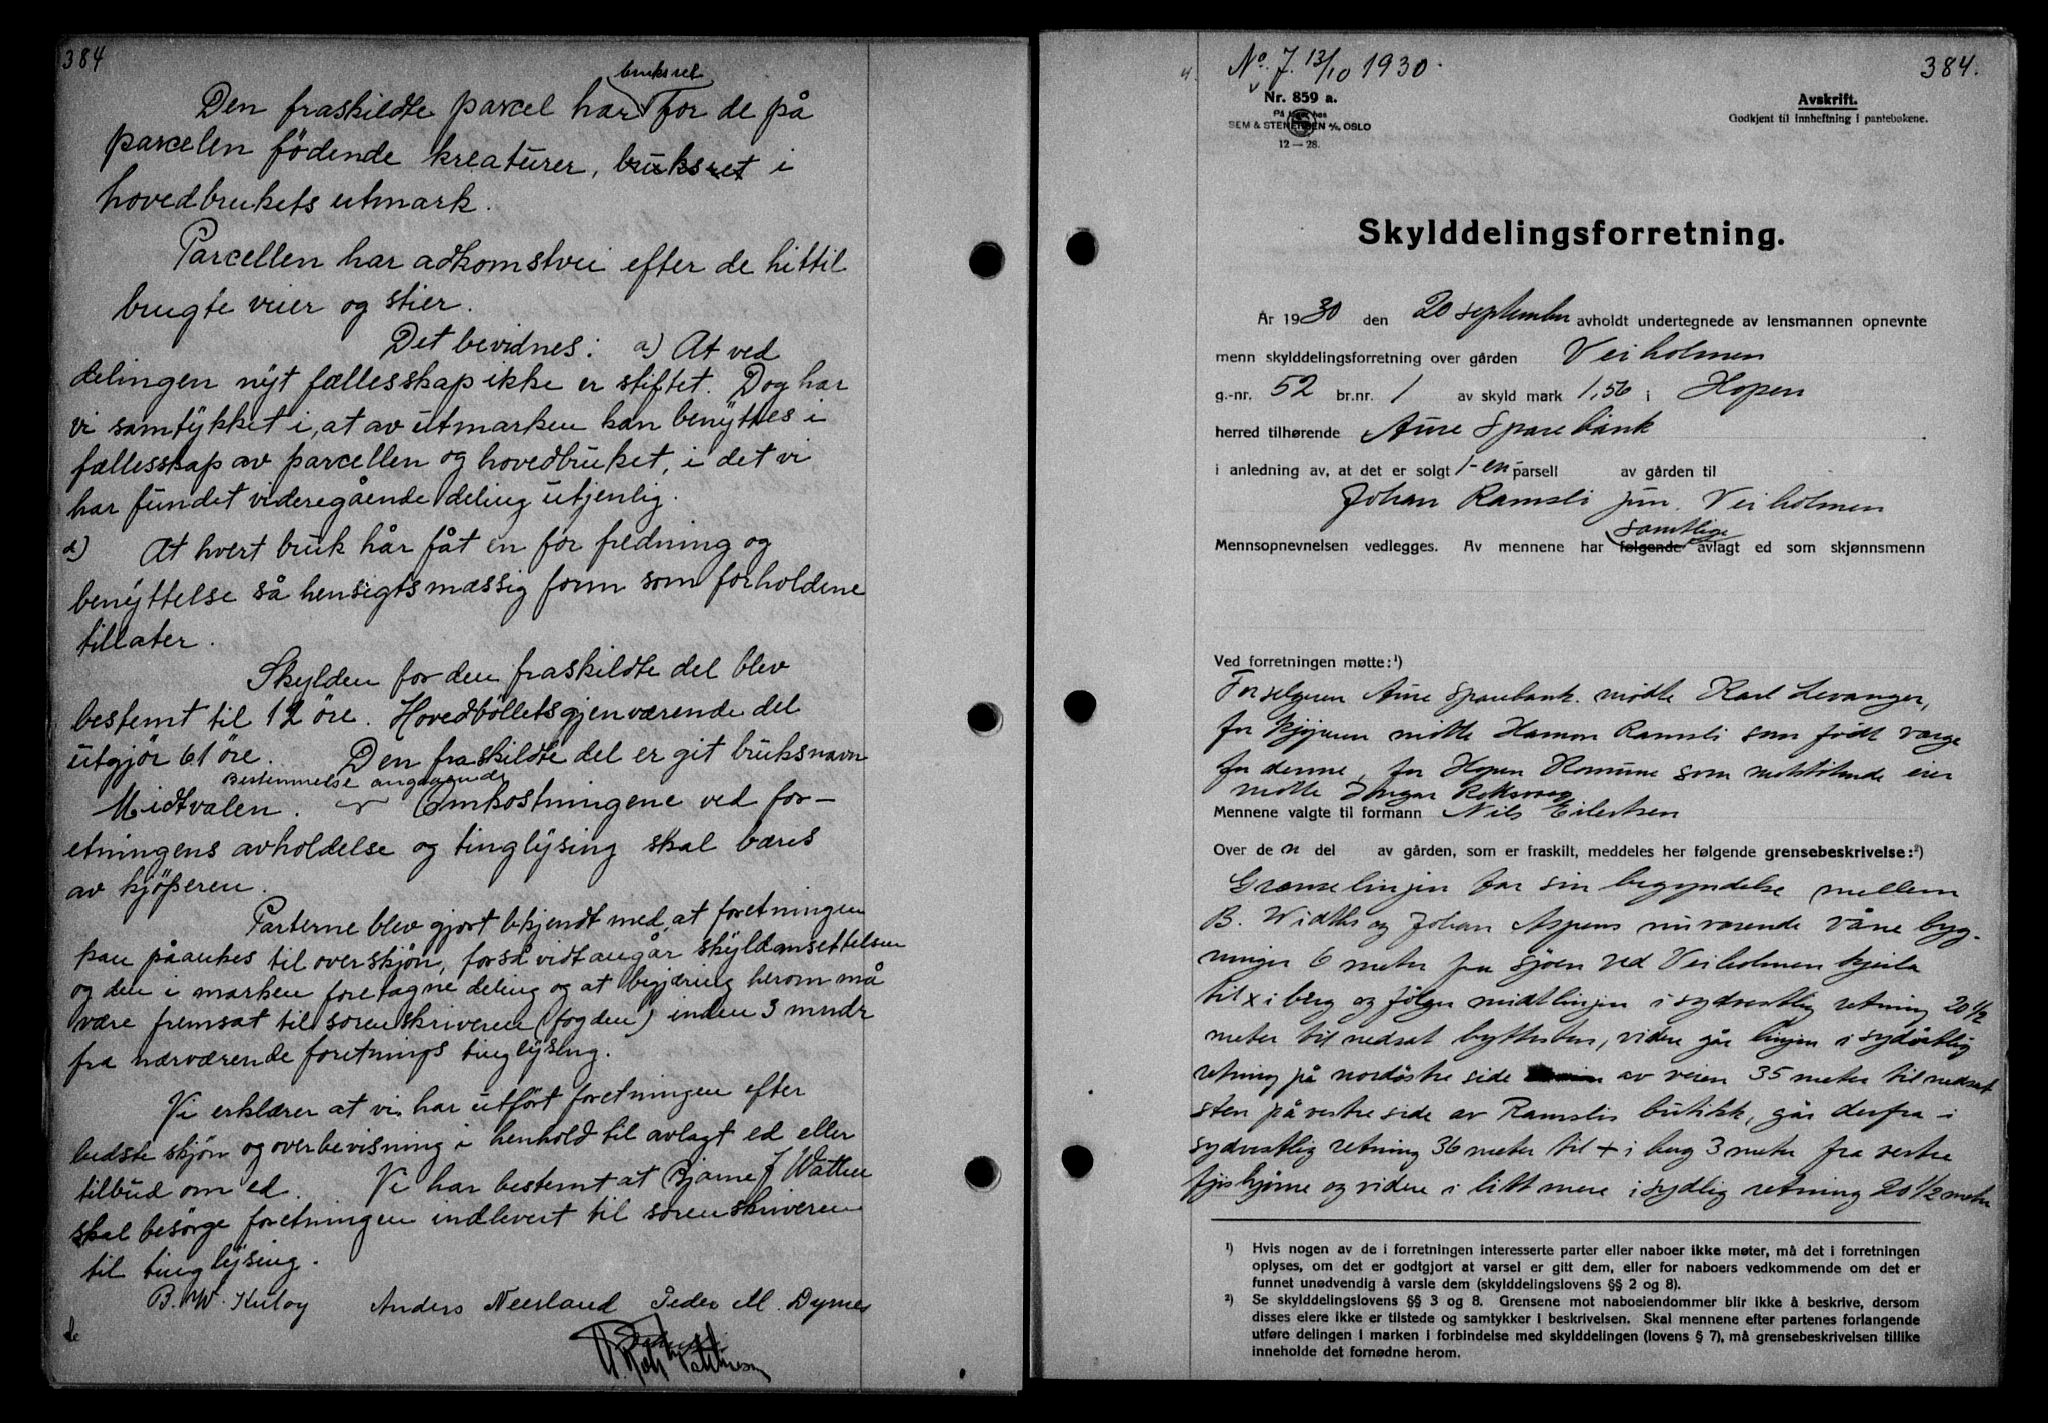 384
bruksret
Den fraskildte parcel har for de på
parcelen födende kreaturer, bruksret i
hovedbrukets utmark.
Parcellen har adkomstvei efter de hittil
brugte veier og stier.
Det bevidnes: a) At ved
delingen nyt fællesskap ikke er stiftet. Dog har
vi samtykket i, at av utmarken kan benyttes i
fællesskap av parcellen og hovedbruket, i det vi
har fundet videregående deling utjenlig.
d) At hvert bruk har fåt en for fredning og
benyttelse så hensigtsmæssig form som forholdene
tillater.
Skylden for den fraskildte del blev
bestemt til 12 öre. Hovedböllets gjenværende del
utgjör 61 öre. Den fraskildte del er git bruksnavn
Bestemmelse angaaende
Midtvalen. Omkostningene ved for-
etningens avholdelse og tinglysing skal bæres
av kjöperen.
Parterne blev gjort bekjendt med, at foretningen
kan påankes til overskjön, forså vidt angår skyldansettelsen
og den i marken foretagne deling og at begjæring herom må
være fremsat til sorenskriveren (fogden) inden 3 mndr
fra nærværende foretnings tinglysing.
Vi erklærer at vi har utfört foretningen efter
bedste skjön og overbevisning i henhold til avlagt ed eller
tilbud om ed. Vi har bestemt at Bjarne J Watten
skal besörge foretningen indlevert til sorenskriveren
til tinglysing.
B. W. Kuløy Anders Neerland Peder M. Dyrnes
No 7. 13/10 1930.
384.
Nr. 859 a.
På lager hos
SEM & STENERSEN A/S, OSLO
12 — 28.
Avskrift.
Godkjent til innheftning i pantebøkene.
Skylddelingsforretning.
År 1930 den 20 september avholdt undertegnede av lensmannen opnevnte
menn skylddelingsforretning over gården Veiholmen
g.-nr. 52 br.nr. 1 av skyld mark 1,56 i Hopen
herred tilhørende Aure Sparebank
i anledning av, at det er solgt 1-en parsell av gården til
Johan Ramsli jun. Veiholmen
samtlige
Mennsopnevnelsen vedlegges. Av mennene har følgende avlagt ed som skjønnsmenn
Ved forretningen møtte:¹)
For selgeren Aure Sparebank. mødte Karl Levanger,
for kjøperen møtte Hamon Ramsli som født verge
for denne, for Hopen Komune som
møtte Ingvar
Mennene valgte til formann Nils Eilertsen
Over de n del av gården, som er fraskilt, meddeles her følgende grensebeskrivelse:²)
Grænselinjen tar sin begyndelse mellem
B. Widths og Johan Aspens nuværende våne byg-
ninger 6 meter fra sjøen ved Veiholmen kjeila
til x i berg og følger midtlinjen i sydvestlig retning 20 1/2
meter til nedsat byttesten, videre går linjen i sydøstlig
retning på nordøstre side av veien 35 meter til nedsat
sten på vestre side av Ramslis butikk, går derfra i
sydvestlig retning 36 meter til + i berg 3 meter fra vestre
fjøshjørne og videre i litt mere i sydlig retning 20 1/2 meter
¹) Hvis nogen av de i forretningen interesserte parter eller naboer ikke møter, må det i forretningen
oplyses, om det er godtgjort at varsel er gitt dem, eller for naboers vedkommende om det er
funnet unødvendig å varsle dem (skylddelingslovens §§ 2 og 8).
²) Se skylddelingslovens §§ 3 og 8. Grensene mot naboeiendommer blir ikke å beskrive, dersom
disses eiere ikke er tilstede og samtykker i beskrivelsen. Skal mennene efter partenes forlangende
utføre delingen i marken i forbindelse med skylddelingen (lovens § 7), må grensebeskrivelsen tillike
inneholde det fornødne herom.